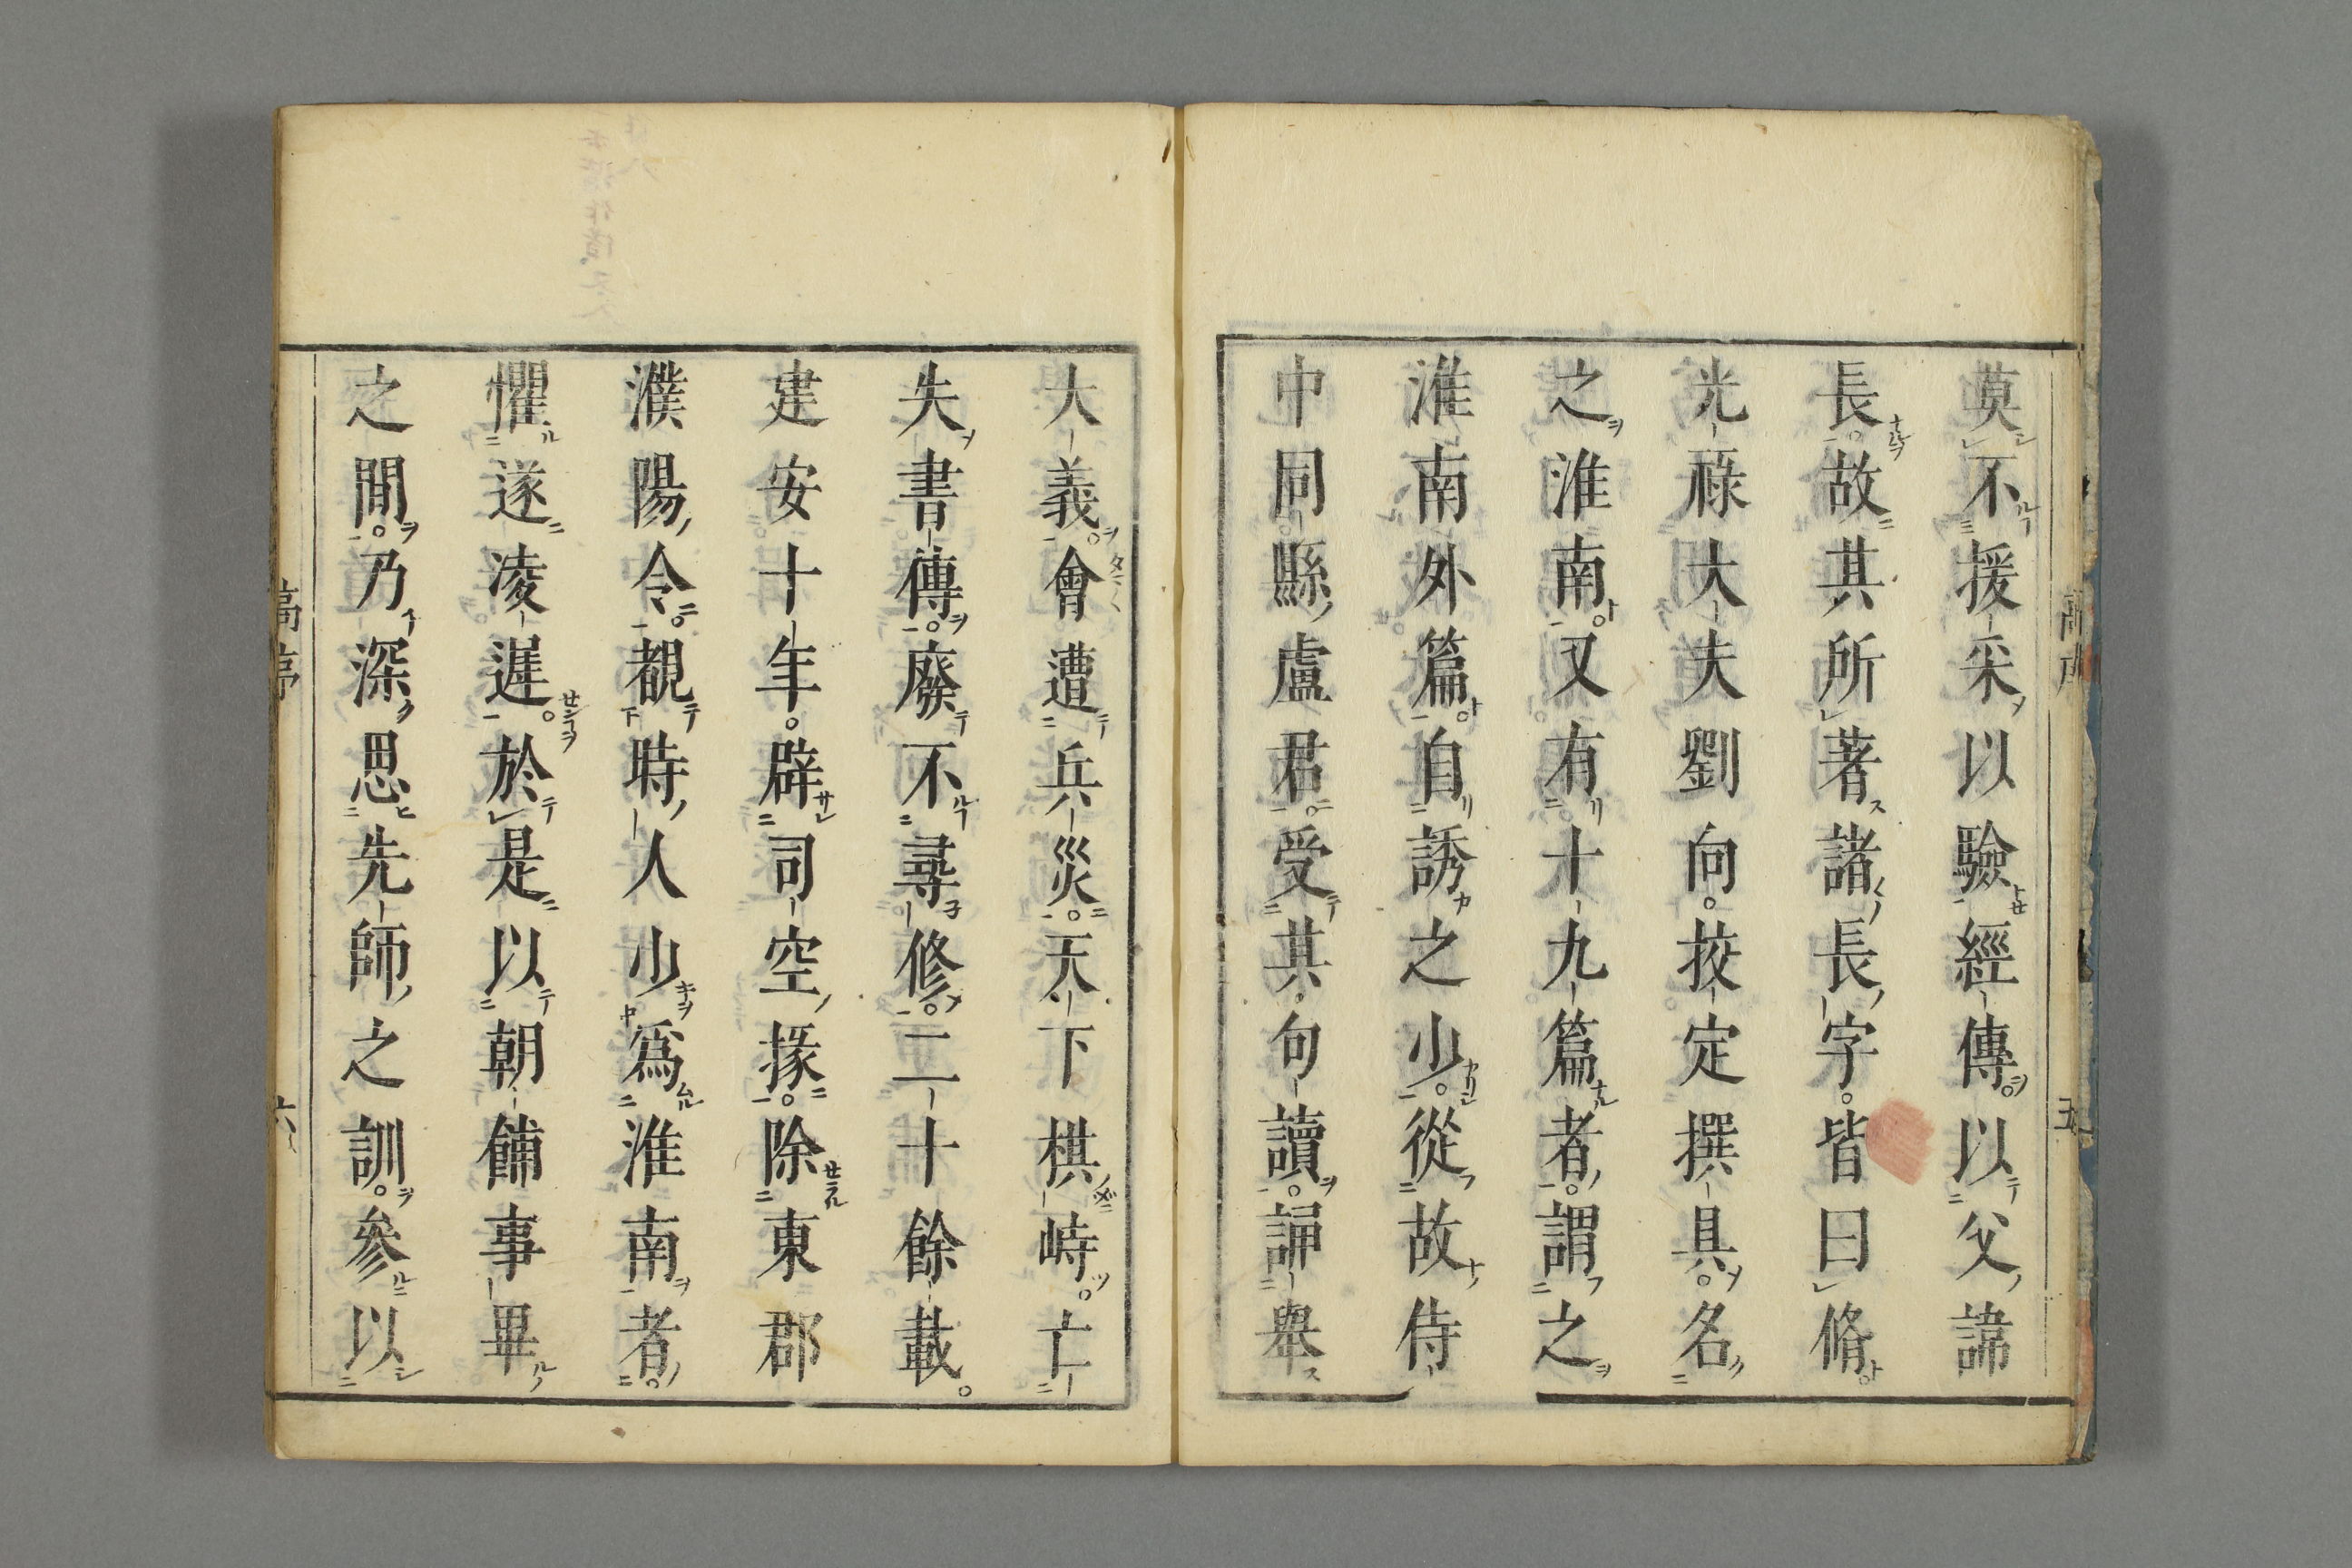 莫不援采以驗經傳。以父諱
長。故其所著諸長字。皆曰脩。
光祿大夫劉向。挍定撰具。名
之淮南。又有十九篇者。謂之
淮南外篇。自誘之少。從故侍
中同縣盧君。受其句讀。誦舉
大義。會遭兵災。天下棋峙。亡
失書傳。廢不尋修。二十餘載。
建安十年。辟司空掾。除東郡
濮陽令。覩時人少爲淮南者。
懼遂凌遲。於是以朝餔事畢
之閒。乃深思先師之訓。參以
高序
六